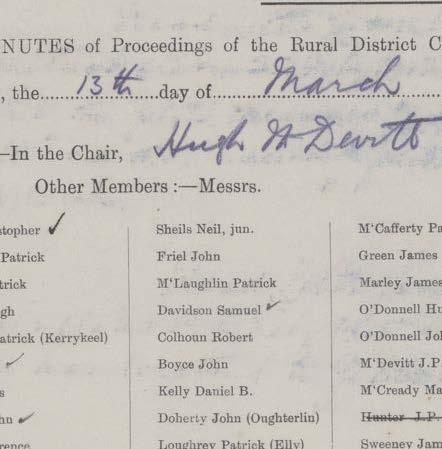 NUTES of Proceedings of the Rural District C
, the 13th day of March
—In the Chair, Hugh McDevitt
Other Members :—Messrs.
stopher ✓ Sheils Neil, jun. M‘Cafferty Pa
Patrick Friel John Green James
trick M‘Laughlin Patrick Marley James
gh Davidson Samuel ✓ O'Donnell Hu
atrick (Kerrykeel) Colhoun Robert O'Donnell Jo
✓ Boyce John M‘Devitt J.P.
s Kelly Daniel B. M‘Cready Ma
hn ✓ Doherty John (Oughterlin) Hunter J.P.
rence Loughrey Patrick (Elly) Sweeney Jam